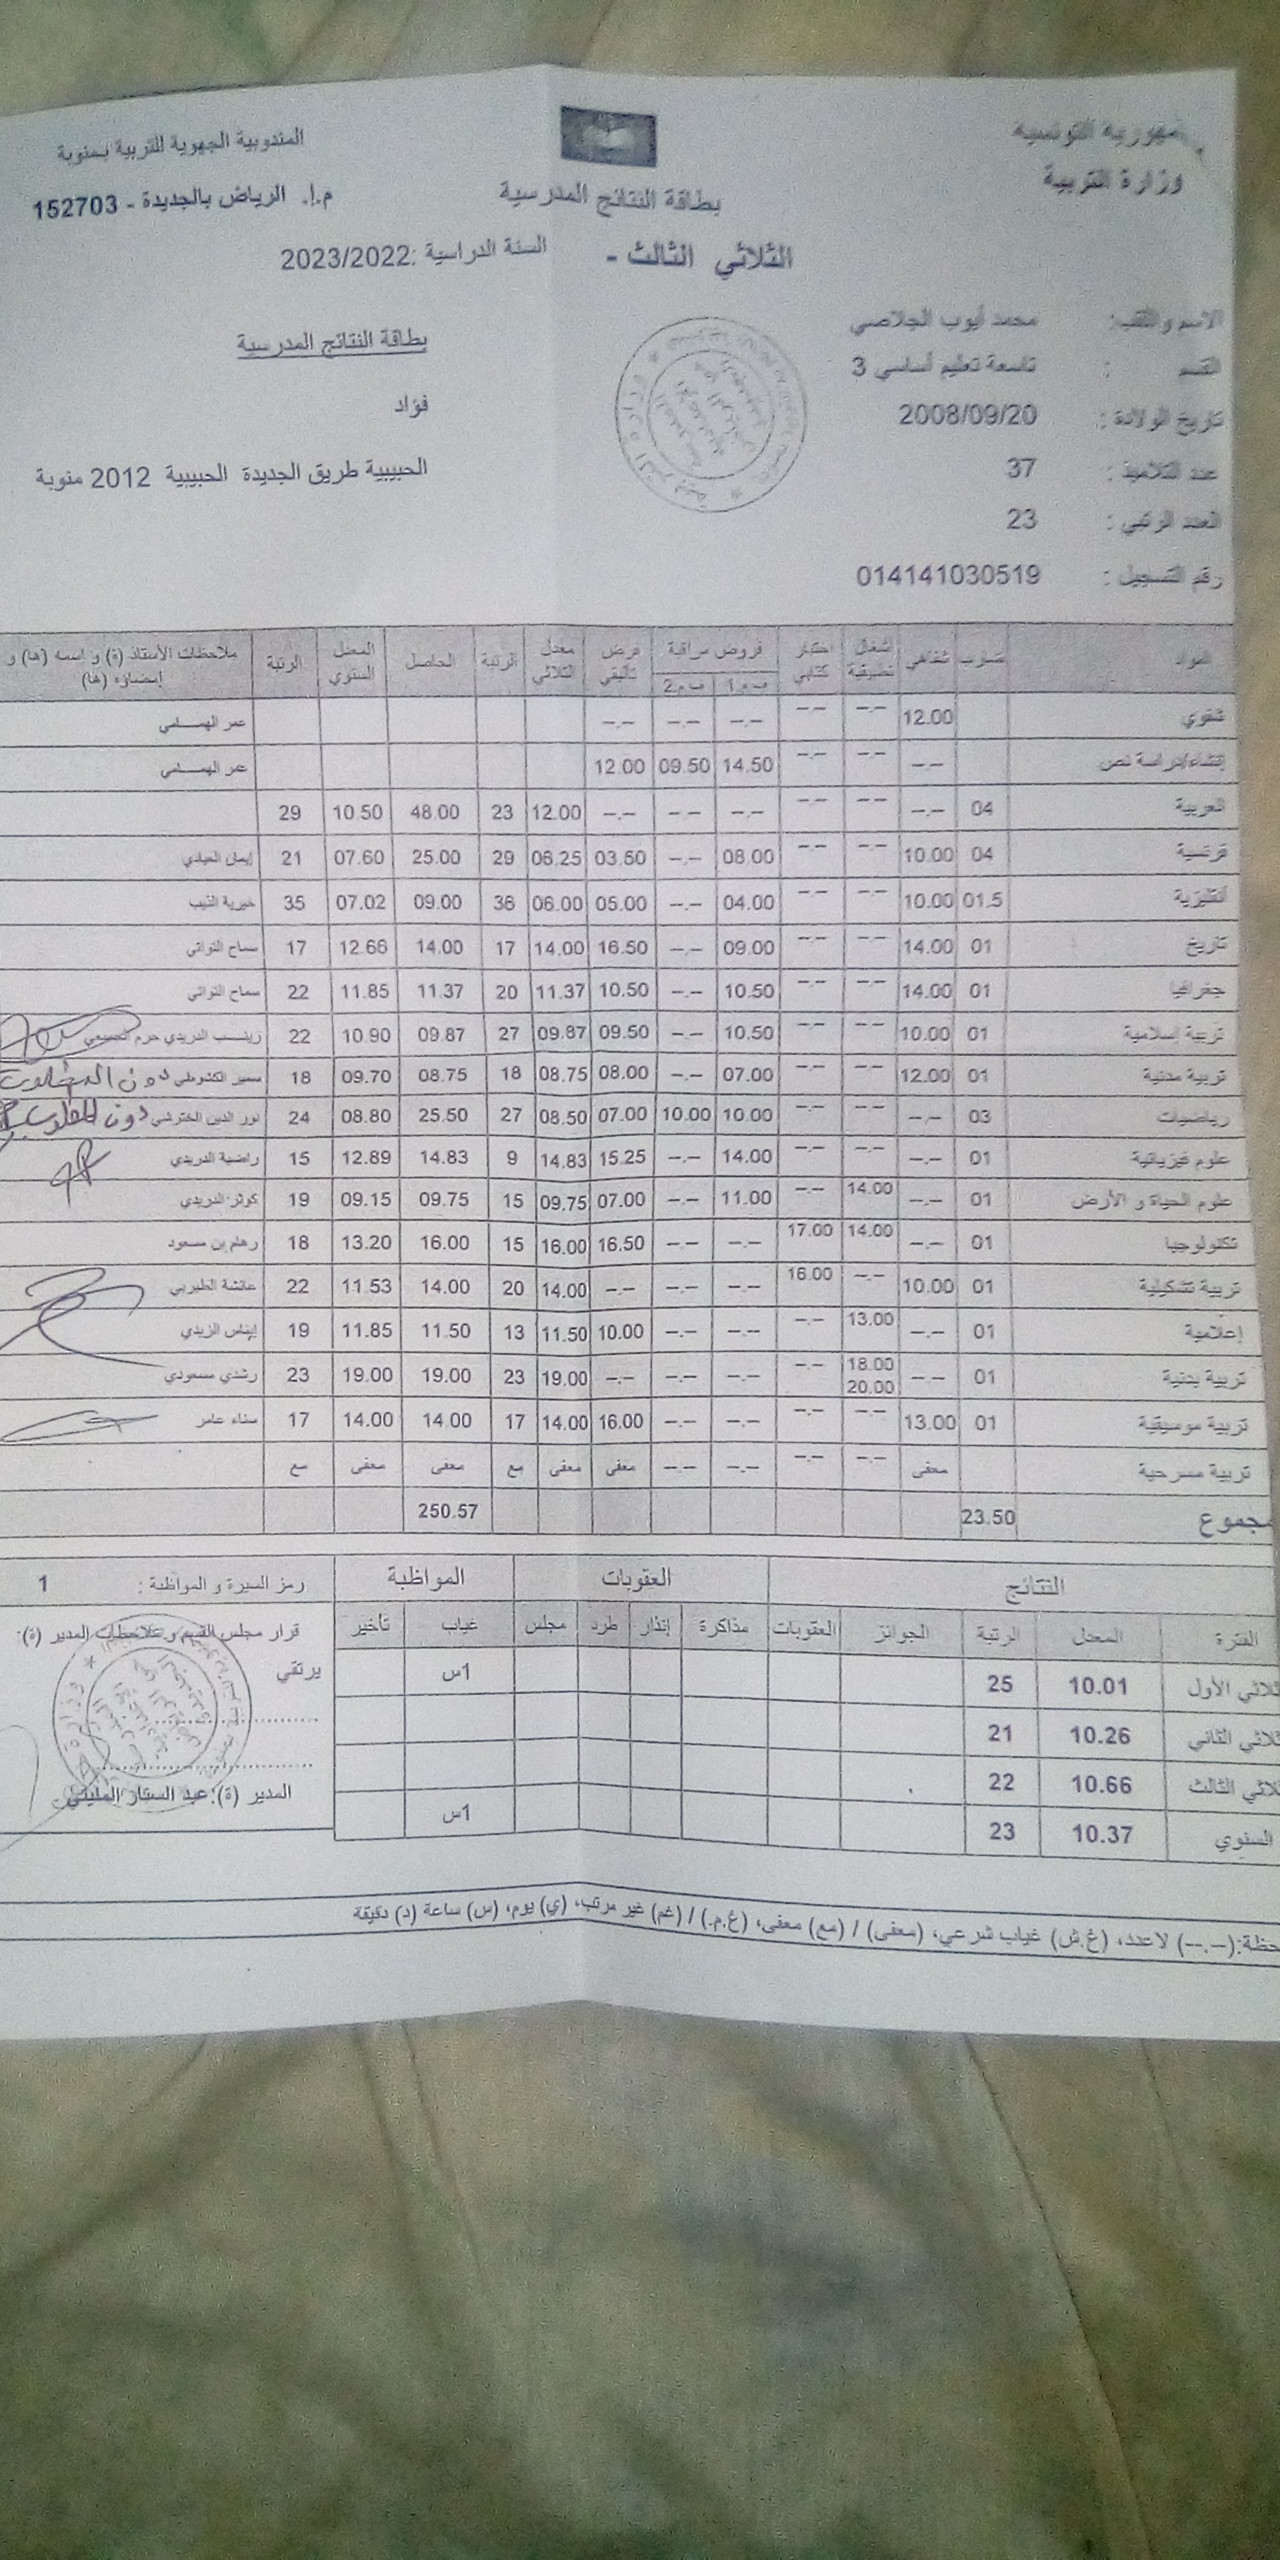 جمهورية التونسية
وزارة التربية
المندوبية الجهوية للتربية بمنوبة
م.إ. الرياض بالجديدة - 152703
بطاقة النتائج المدرسية
الثلاثي الثالث -
السنة الدراسية :2023/2022
الاسم واللقب: محمد أيوب الجلاصي
القسم : تاسعة تعليم أساسي 3
تاريخ الولادة : 2008/09/20
عدد التلاميذ : 37
العدد الرتبي : 23
رقم التسجيل : 014141030519
بطاقة النتائج المدرسية
فؤاد
الحبيبية طريق الجديدة الحبيبية 2012 منوبة
المواد ضارب شفاهي اشغال تطبيقية اختبار كتابي فروض مراقبة ف.م.1 ف.م.2 فرض تأليفي معدل الثلاثي الرتبة الحاصل المعدل السنوي الرتبة ملاحظات الأستاذ (ة) و اسمه (ها) و إمضاؤه (ها)
شفوي 12.00 --.-- --.-- --.-- --.-- --.-- عمر الهمامي
إنشاء/دراسة نص --.-- --.-- --.-- 14.50 09.50 12.00 عمر الهمامي
العربية 04 --.-- --.-- --.-- --.-- --.-- --.-- 12.00 23 48.00 10.50 29
فرنسية 04 10.00 --.-- --.-- 08.00 --.-- 03.50 06.25 29 25.00 07.60 21 إيمان العيادي
أنقليزية 01.5 10.00 --.-- --.-- 04.00 --.-- 05.00 06.00 36 09.00 07.02 35 خيرية الذيب
تاريخ 01 14.00 --.-- --.-- 09.00 --.-- 16.50 14.00 17 14.00 12.66 17 سماح التواتي
جغرافيا 01 14.00 --.-- --.-- 10.50 --.-- 10.50 11.37 20 11.37 11.85 22 سماح التواتي
تربية إسلامية 01 10.00 --.-- --.-- 10.50 --.-- 09.50 09.87 27 09.87 10.90 22 زينب الدريدي حرم
تربية مدنية 01 12.00 --.-- --.-- 07.00 --.-- 08.00 08.75 18 08.75 09.70 18 سمير دون
رياضيات 03 --.-- --.-- --.-- 10.00 10.00 07.00 08.50 27 25.50 08.80 24 نور الدين دون المطلوب
علوم فيزيائية 01 --.-- --.-- --.-- 14.00 --.-- 15.25 14.83 9 14.83 12.89 15 راضية الدريدي
علوم الحياة و الأرض 01 --.-- 14.00 --.-- 11.00 --.-- 07.00 09.75 15 09.75 09.15 19 كوثر الدريدي
تكنولوجيا 01 --.-- 14.00 17.00 --.-- --.-- 16.50 16.00 15 16.00 13.20 18 رهام بن مسعود
تربية تشكيلية 01 10.00 --.-- 16.00 --.-- --.-- --.-- 14.00 20 14.00 11.53 22 عائشة
إعلامية 01 --.-- 13.00 --.-- --.-- --.-- 10.00 11.50 13 11.50 11.85 19 إيناس الزيدي
تربية بدنية 01 -- -- 18.00 20.00 --.-- --.-- --.-- --.-- 19.00 23 19.00 19.00 23 رشدي مسعودي
تربية موسيقية 01 13.00 --.-- --.-- --.-- --.-- 16.00 14.00 17 14.00 14.00 17 سناء عامر
تربية مسرحية معفى --.-- --.-- --.-- --.-- معفى معفى مع معفى معفى مع
مجموع 23.50 250.57
النتائج العقوبات المواظبة رمز السيرة و المواظبة : 1
الفترة المعدل الرتبة الجوائز العقوبات مذاكرة إنذار طرد مجلس غياب تأخير
ثلاثي الأول 10.01 25 1س
ثلاثي الثاني 10.26 21
ثلاثي الثالث 10.66 22
السنوي 10.37 23 1س
قرار مجلس القسم و ملاحظات المدير (ة):
يرتقي
المدير (ة): عبد الستار المليتي
حظة:(--.--) لاعدد، (غ.ش) غياب شرعي، (معفى) / (مع) معفى، (غ.م.) / (غم) غير مرتب، (ي) يوم، (س) ساعة (د) دقيقة